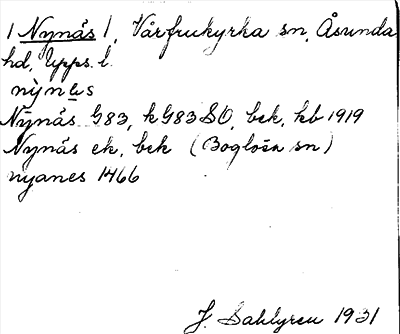 1 Nynäs 1, Vårfrukyrka sn, Åsunda
hd, Upps. l.
Nynäs G83, k G83 SO, bek, kb 1919
Nynäs ek, bek (Boglösa sn)
nyanes 1466
J. Sahlgren 1931